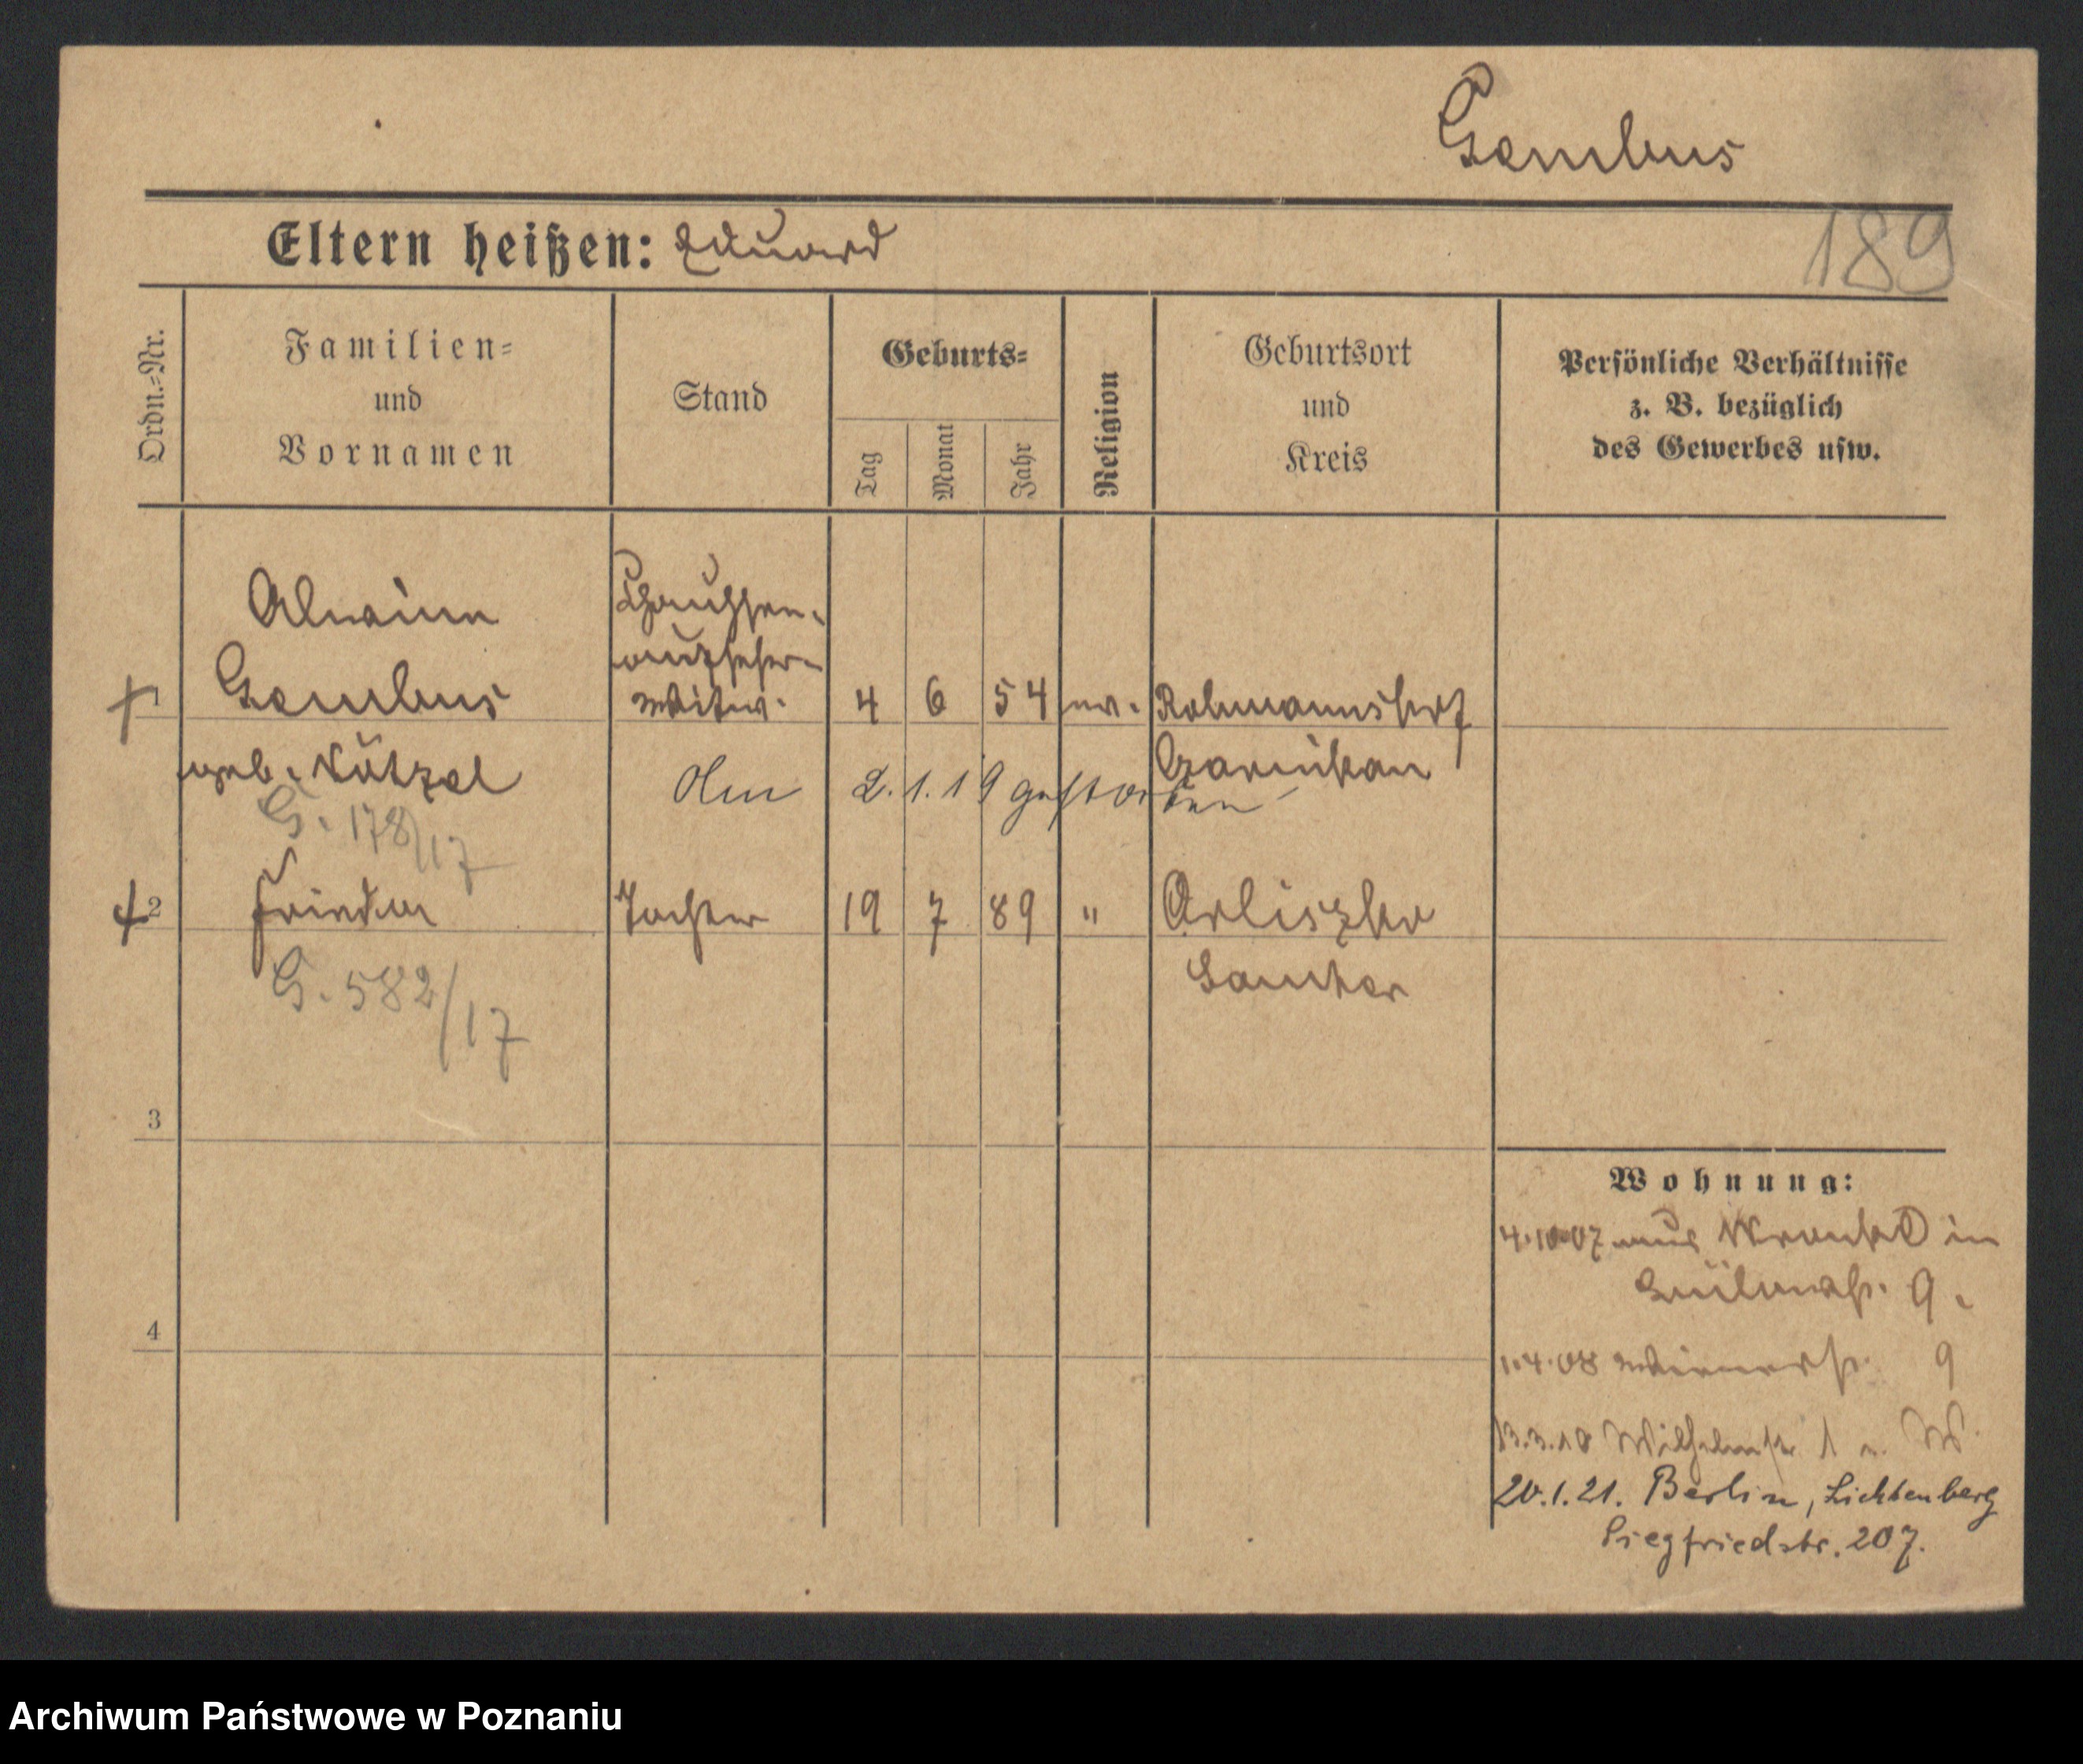 Gembus
Eltern heißen: Eduard
189
Ordn.=Nr.
Familien=
und
Vornamen
Stand
Geburts=
Tag
Monat
Jahr
Religion
Geburtsort
und
Kreis
Persönliche Verhältnisse
z. B. bezüglich
des Gewerbes usw.
Alwine
Chaussee-
aufseher-
1 Gembus Witw. 4 6 54 ev. Romanshof
geb. Czarnikau
Am 2.1.19 gestorben
G. 178/17
2 Frieda Tochter 19 7 89 "
G. 582/17
Samter
3
Wohnung:
4.10.07 aus in
9.
4
1.4.08 9
13.3.10 Wilhelmstr 1 W.
20.1.21. Berlin, Lichtenberg
Siegfriedstr. 207.
Archiwum Państwowe w Poznaniu